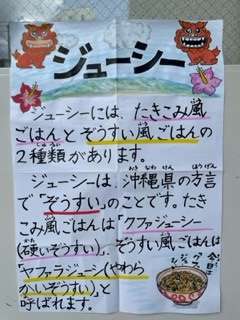 ジューシー
ジューシーには、たきこみ風
ごはんと ぞうすい風ごはんの
2種類があります。
ジューシーは、沖縄県の方言
で「ぞうすい」のことです。たき
こみ風ごはんは「クファジューシー
(硬いぞうすい)」、ぞうすい風ごはんは
「ヤファラジューシ(やわら
かいぞうすい)」と
呼ばれます。